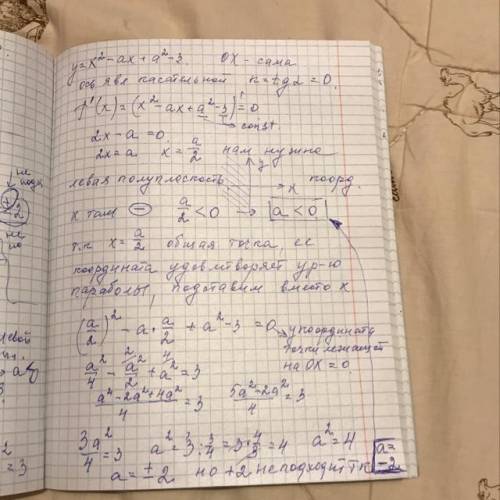 y=x²-ax+a²-3. OX - сама
ось явл касательной k=tg2=0.
f'(x)=(x²-ax+a²-3)'=0
const
2x-a=0
2x=a x=a/2 нам нужна
y
левая полуплоскость x коорд.
x там (-) a/2<0 → a<0
т.к x=a/2 общая точка, ее
координата удовлетворяет ур-ю
параболы, подставим вместо x
(a/2)²-a·a/2+a²-3=0 y координата
точки лежащей
на OX=0.
a²/4-a²/2+a²=3
(a²-2a²+4a²)/4=3 (5a²-2a²)/4=3
3a²/4=3 a²=3:3/4=3·4/3=4 a²=4
a=±2 но +2 не подходит тк a=-2
не
подх
не
но